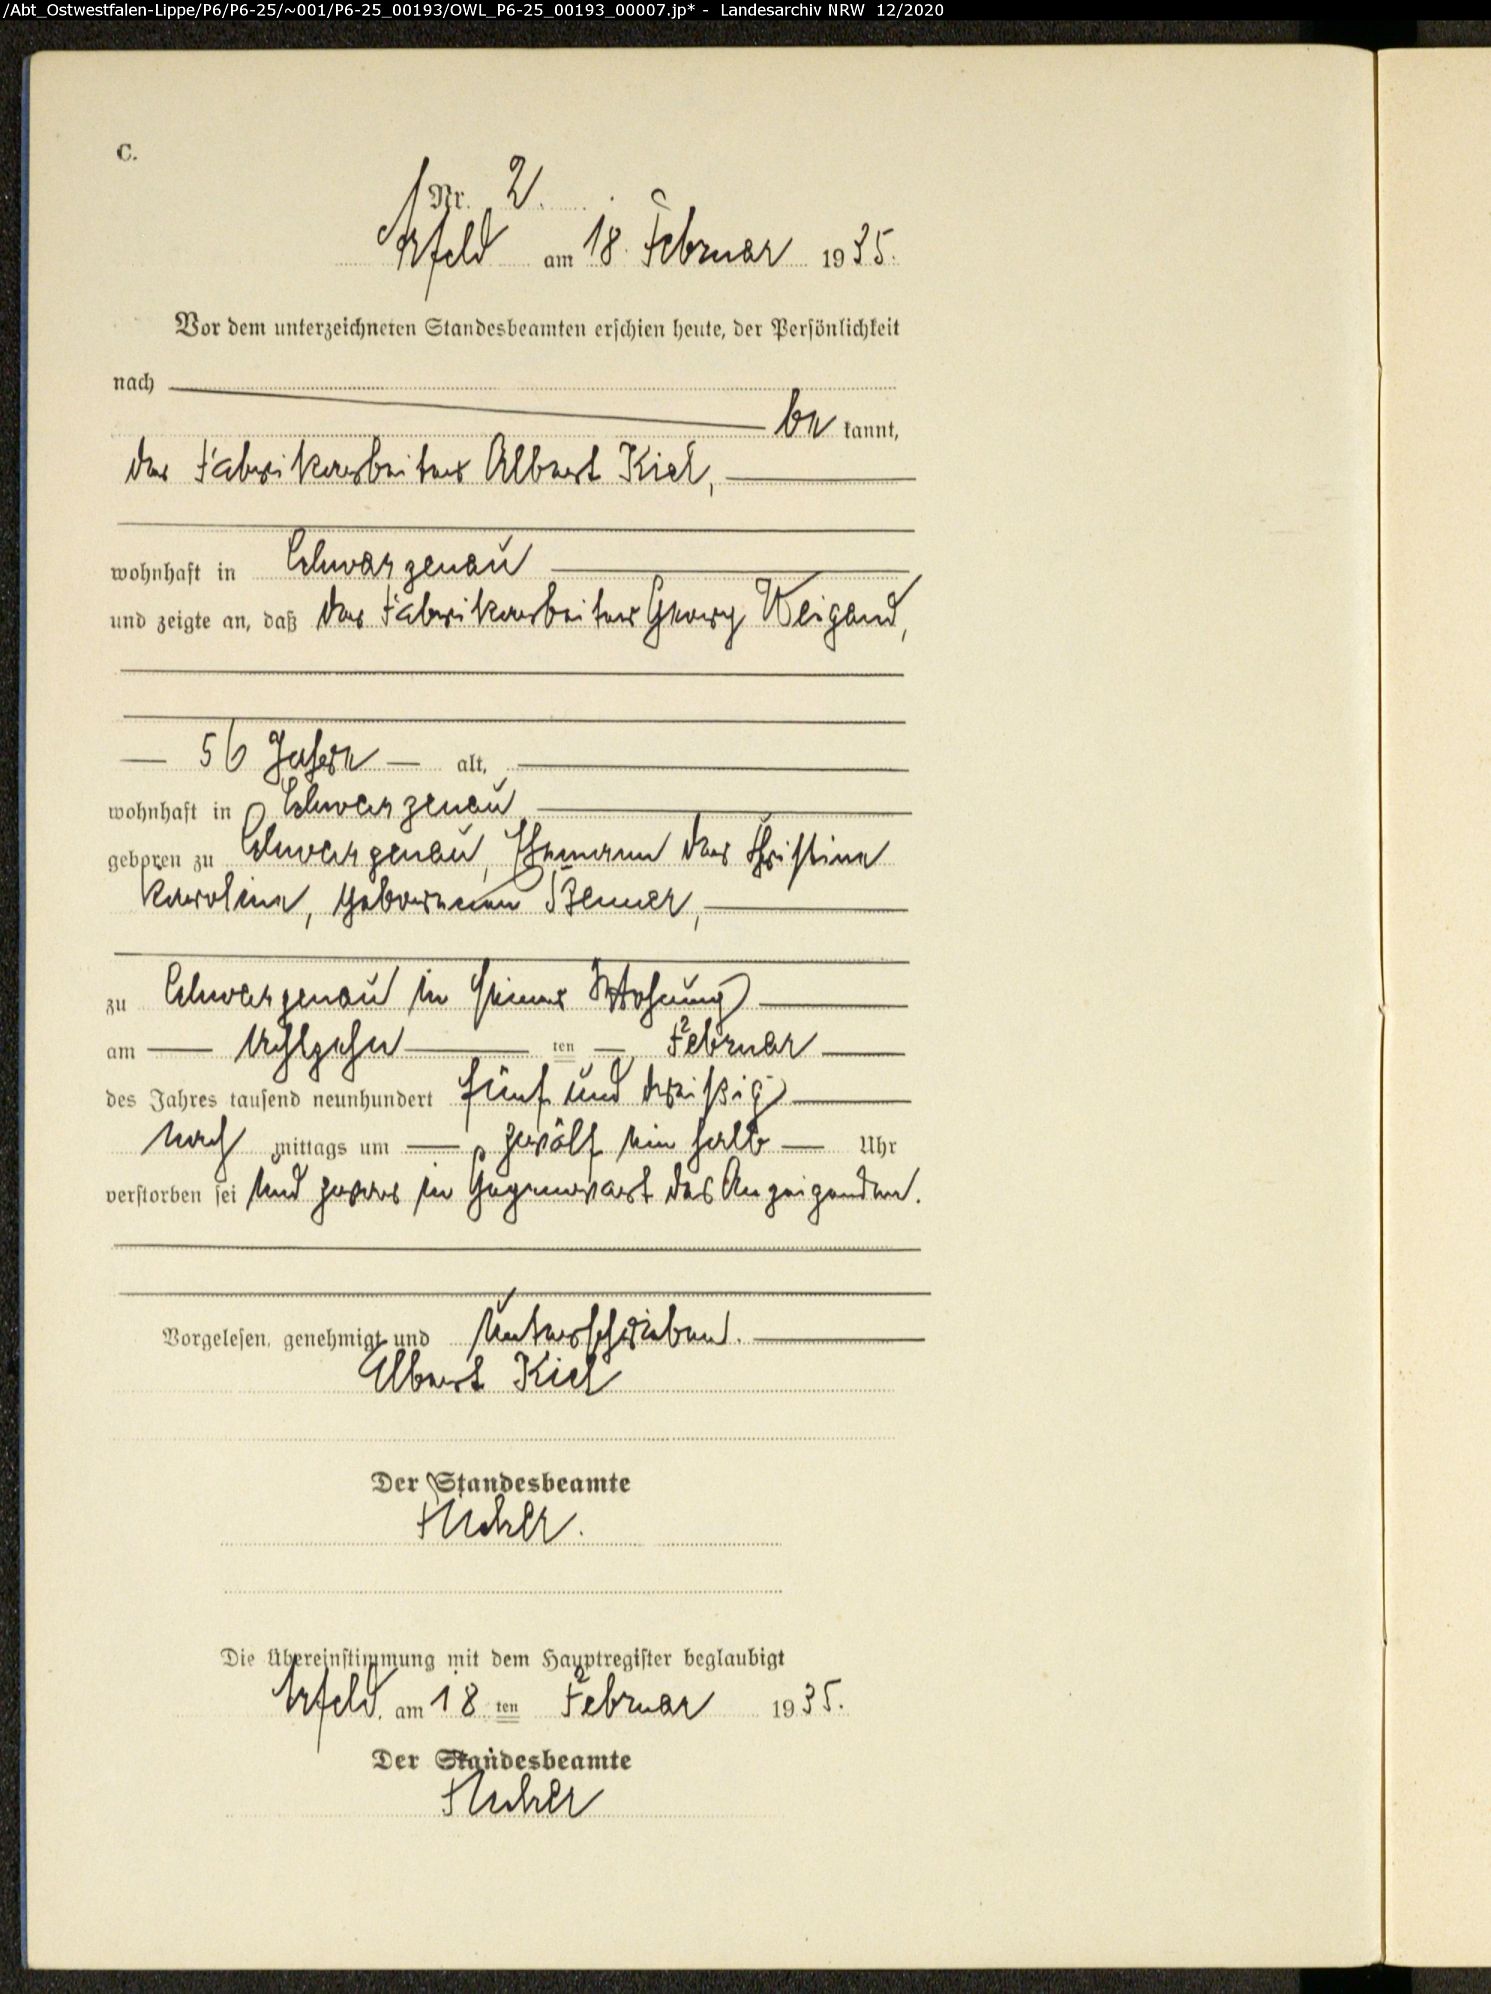 /Abt_Ostwestfalen-Lippe/P6/P6-25/~001/P6-25_00193/OWL_P6-25_00193_00007.jp* - Landesarchiv NRW 12/2020
C.
Nr. 2.
Arfeld am 18. Februar 1935.
Vor dem unterzeichneten Standesbeamten erschien heute, der Persönlichkeit
nach
be kannt,
der Fabrikarbeiter Albert Kiel,
wohnhaft in Schwarzenau
und zeigte an, daß der Fabrikarbeiter Georg Weigand,
56 Jahre alt,
wohnhaft in Schwarzenau
geboren zu Schwarzenau, Ehemann der Christine
Karoline, geborenen
zu Schwarzenau in seiner Wohnung
am achtzehn ten Februar
des Jahres tausend neunhundert fünf und dreißig
nach mittags um zwölf ein halb Uhr
verstorben sei und zwar in Gegenwart des Anzeigenden.
Vorgelesen, genehmigt und unterschrieben.
Albert Kiel
Der Standesbeamte
Die Übereinstimmung mit dem Hauptregister beglaubigt
Arfeld, am 18 ten Februar 1935.
Der Standesbeamte